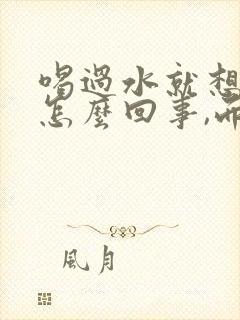 喝過水就想
怎麼回事,而
風月